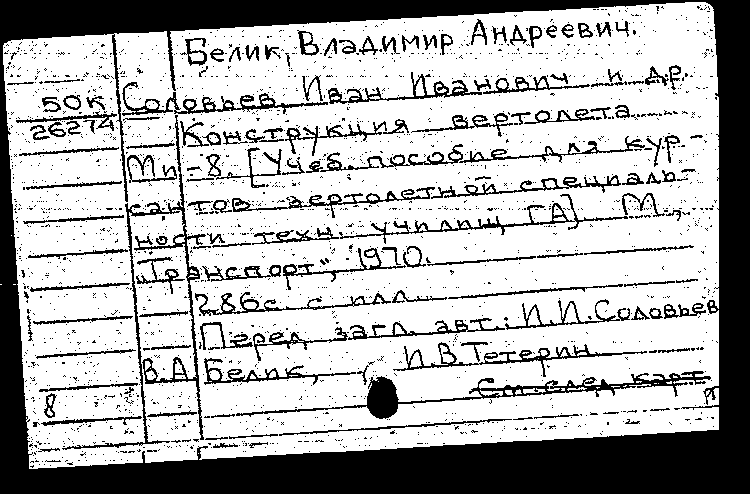 Белик, Владимир Андреевич.
50к Соловьев, Иван Иванович и др.
26274 Конструкция вертолета
Ми-8. [Учеб. пособие для кур-
сантов вертолетной специаль-
ности техн. училищ ГА]. М.,
"Транспорт", 1970.
286с. с илл.
Перед загл. авт.: И.И.Соловьев
В.А. Белик, И.В.Тетерин.
См. след карт
8